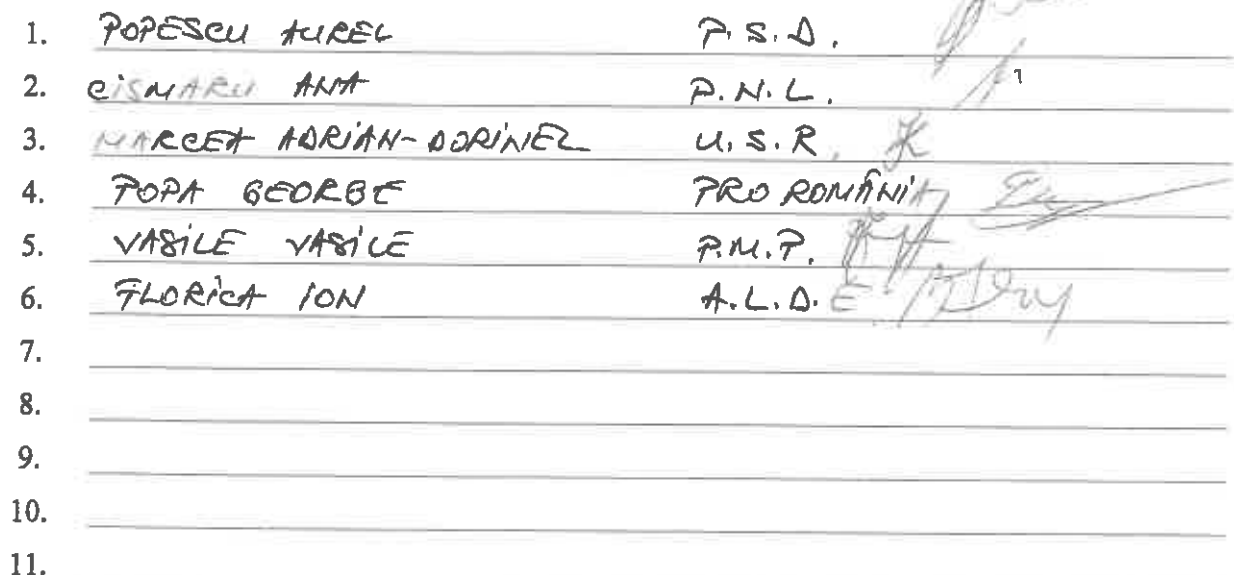 1. POPESCU AUREL P.S.D.
2. CISMARU ANA P.N.L.
3. MARCEA ADRIAN-DORINEL U.S.R.
4. POPA GEORGE PRO ROMÂNIA
5. VASILE VASILE P.M.P.
6. FLORICA ION A.L.D.E.
7.
8.
9.
10.
11.